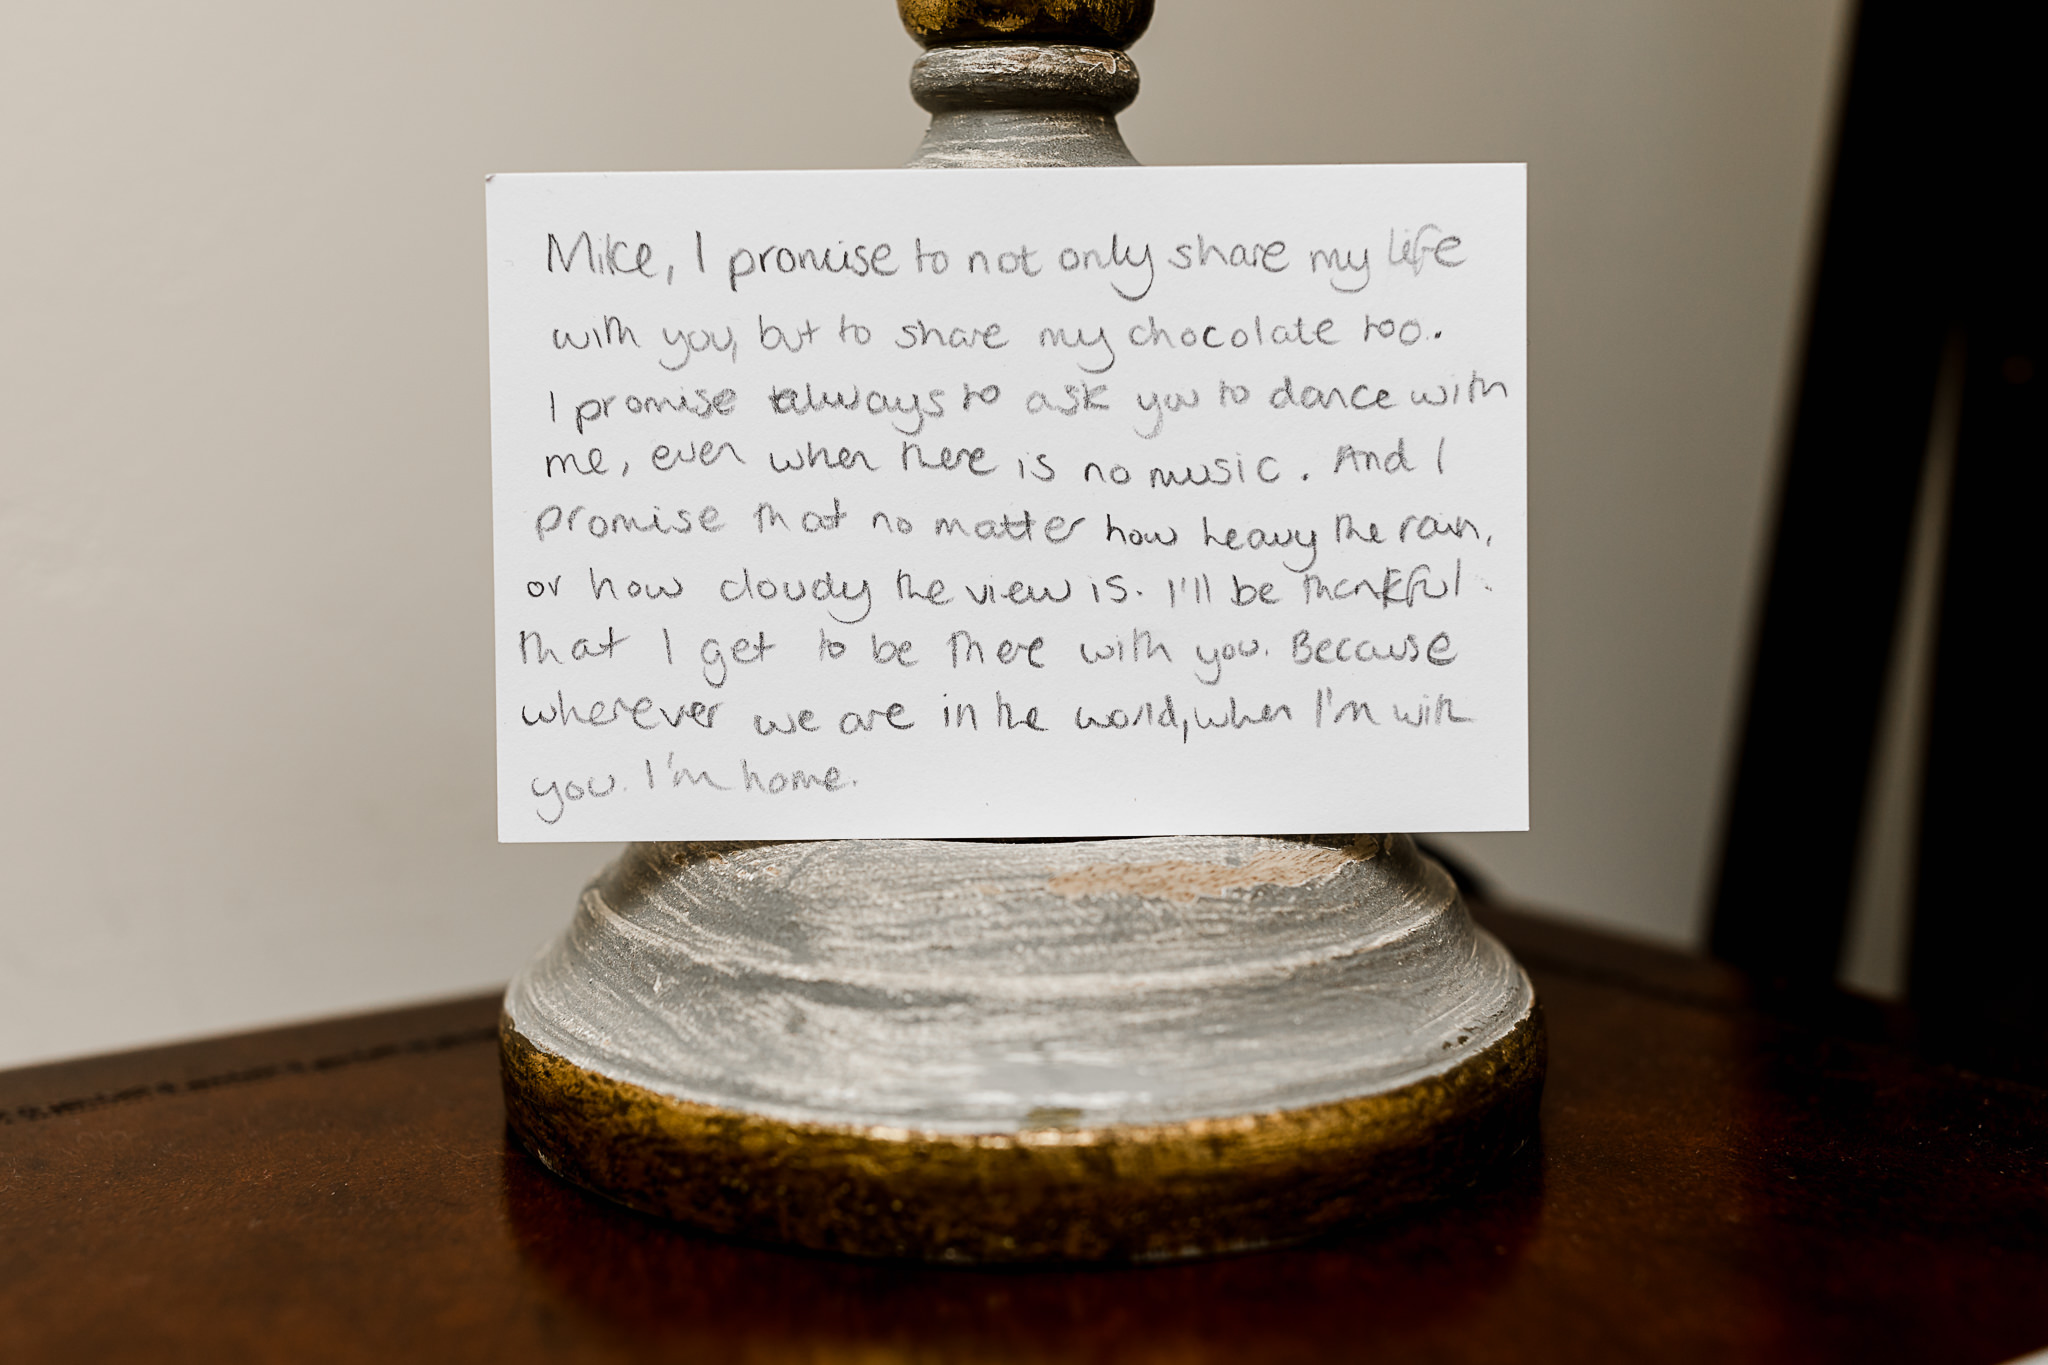 Mike, I promise to not only share my life
with you, but to share my chocolate too.
I promise always to ask you to dance with
me, even when there is no music. And I
promise that no matter how heavy the rain,
or how cloudy the view is. I'll be thankful
that I get to be there with you. Because
wherever we are in the world, when I'm with
you. I'm home.